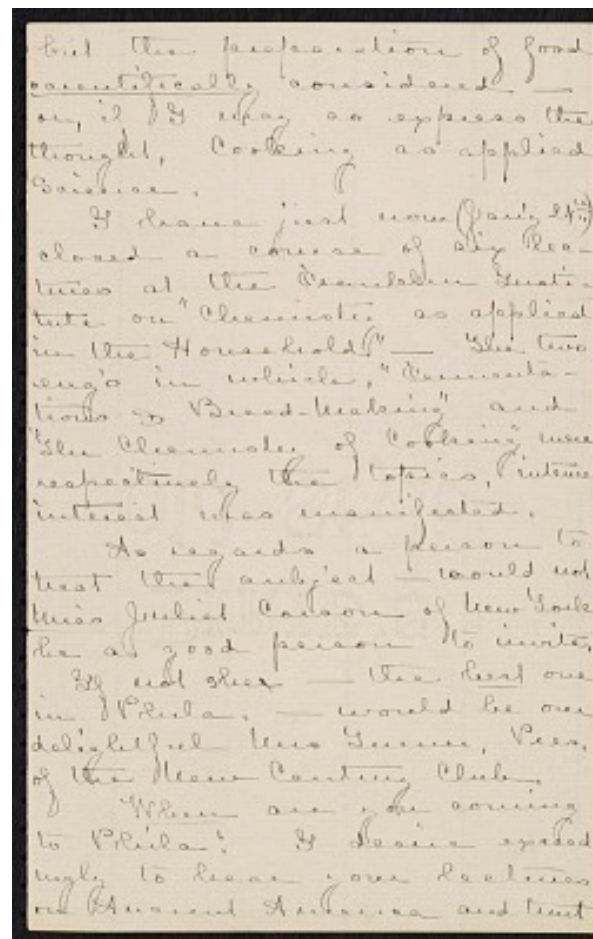 but the preparation of food
scientifically considered —
or, if I may so express the
thought, Cooking as applied
Science.
I have just now
closed a course of six lec-
tures at the Franklin Insti-
tute on "Chemistry as applied
in the Household" — The two
in which, "Fermenta-
tions & Bread-Making" and
"The Chemistry of Cooking" were
respectively the topics, intense
interest was manifested.
As regards a person to
treat the subject — would not
Miss Juliet Corson of New York
be a good person to invite,
If not she — the best one
in Phila. — would be our
delightful Mrs Turner, Pres.
of the New Century Club.
When are you coming
to Phila? I desire exceed
ingly to hear your lectures
on Ancient America and trust